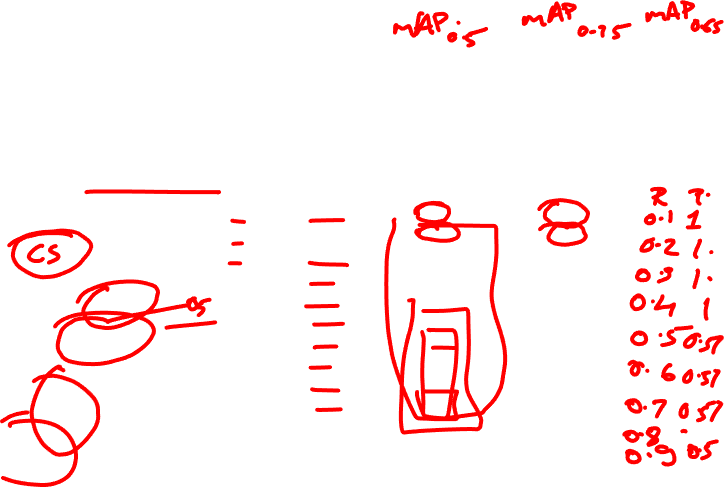 mAP0.5 mAP0.75 mAP0.65
R P.
0.1 1
CS
0.2 1.
0.3 1.
0.4 1
0.5 0.57
0.6 0.57
0.7 0.57
0.8
0.9 0.5